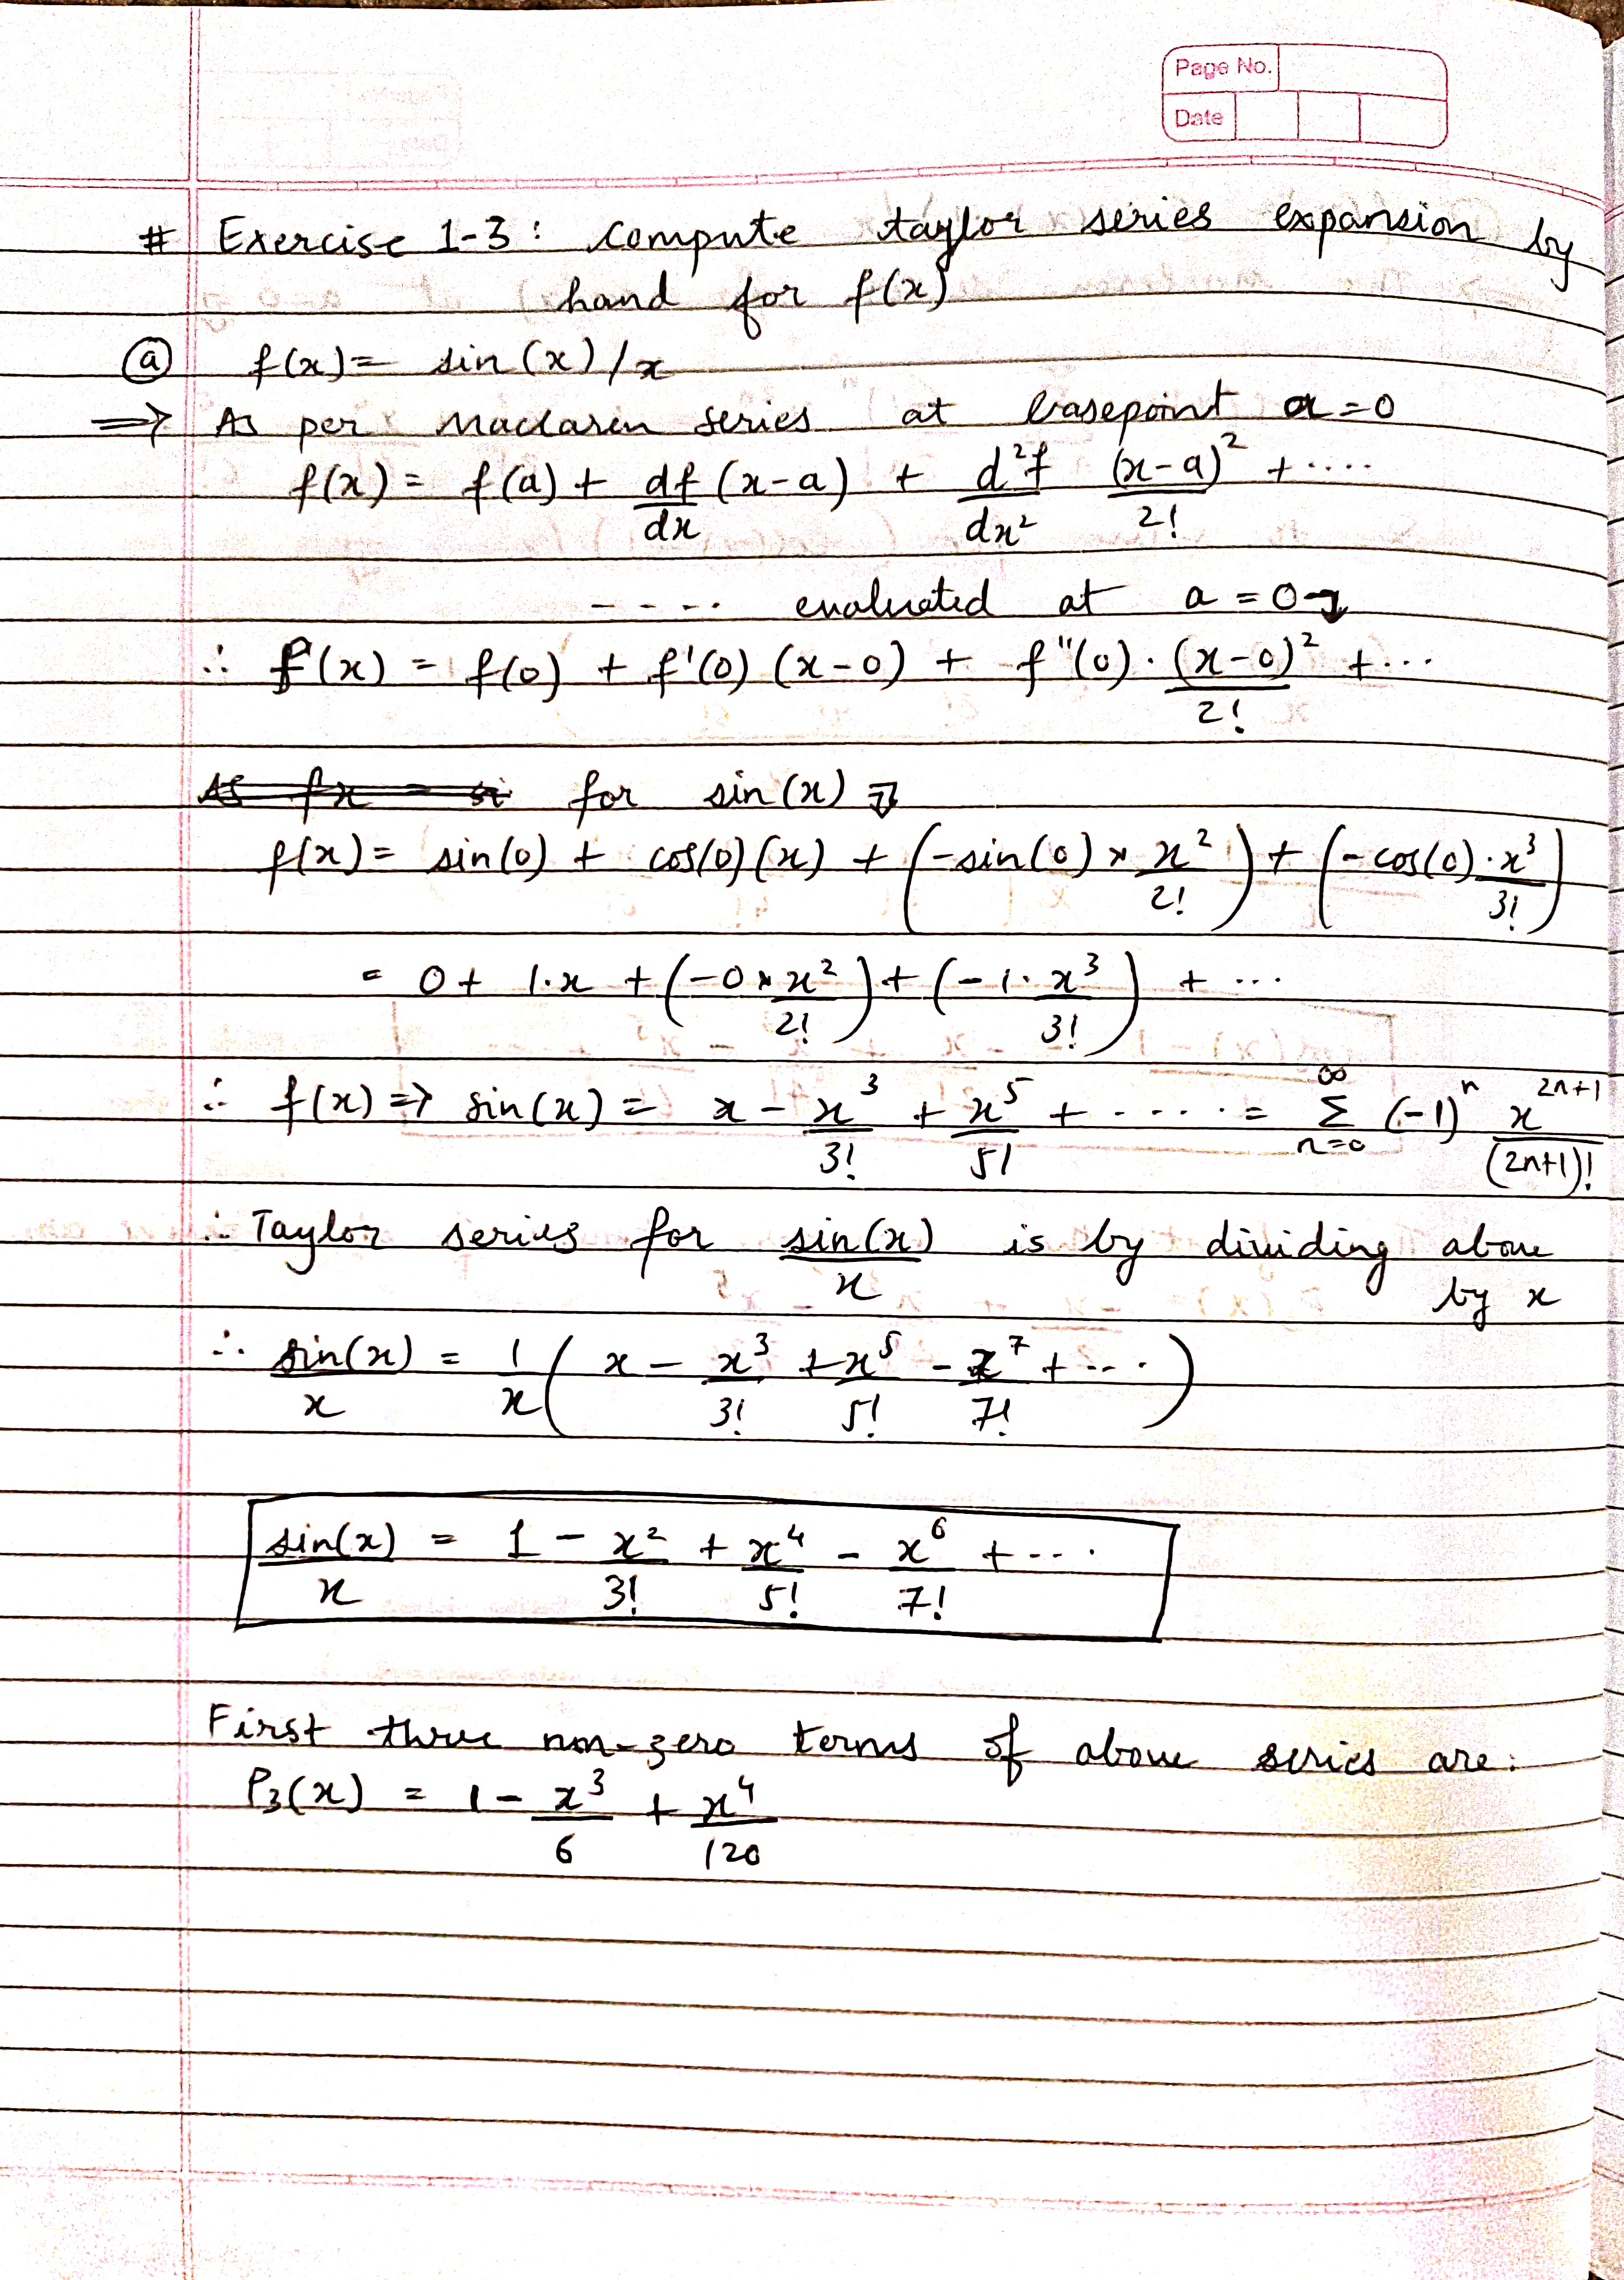 Page No.
Date
# Exercise 1-3: Compute taylor series expansion by
hand for f(x)
ⓐ f(x) = sin(x)/x
⇒ As per Maclaren series at basepoint a=0
f(x) = f(a) + df/dx (x-a) + d²f/dx² (x-a)²/2! + ....
---.. evaluated at a = 0
∴ f(x) = f(0) + f'(0) (x-0) + f"(0) · (x-0)²/2! + ...
for sin(x)
f(x) = sin(0) + cos(0)(x) + (-sin(0) × x²/2!) + (-cos(0)·x³/3!)
= 0 + 1·x + (-0 × x²/2!) + (-1· x³/3!) + ...
∴ f(x) ⇒ sin(x) = x - x³/3! + x⁵/5! + ..... = ∞ Σ n=0 (-1)ⁿ x²ⁿ⁺¹/(2n+1)!
∴ Taylor series for sin(x)/x is by dividing above
by x
∴ sin(x)/x = 1/x ( x - x³/3! + x⁵/5! - x⁷/7! + .... )
sin(x)/x = 1 - x²/3! + x⁴/5! - x⁶/7! + ....
First three non-zero terms of above series are:
P₃(x) = 1 - x³/6 + x⁴/120